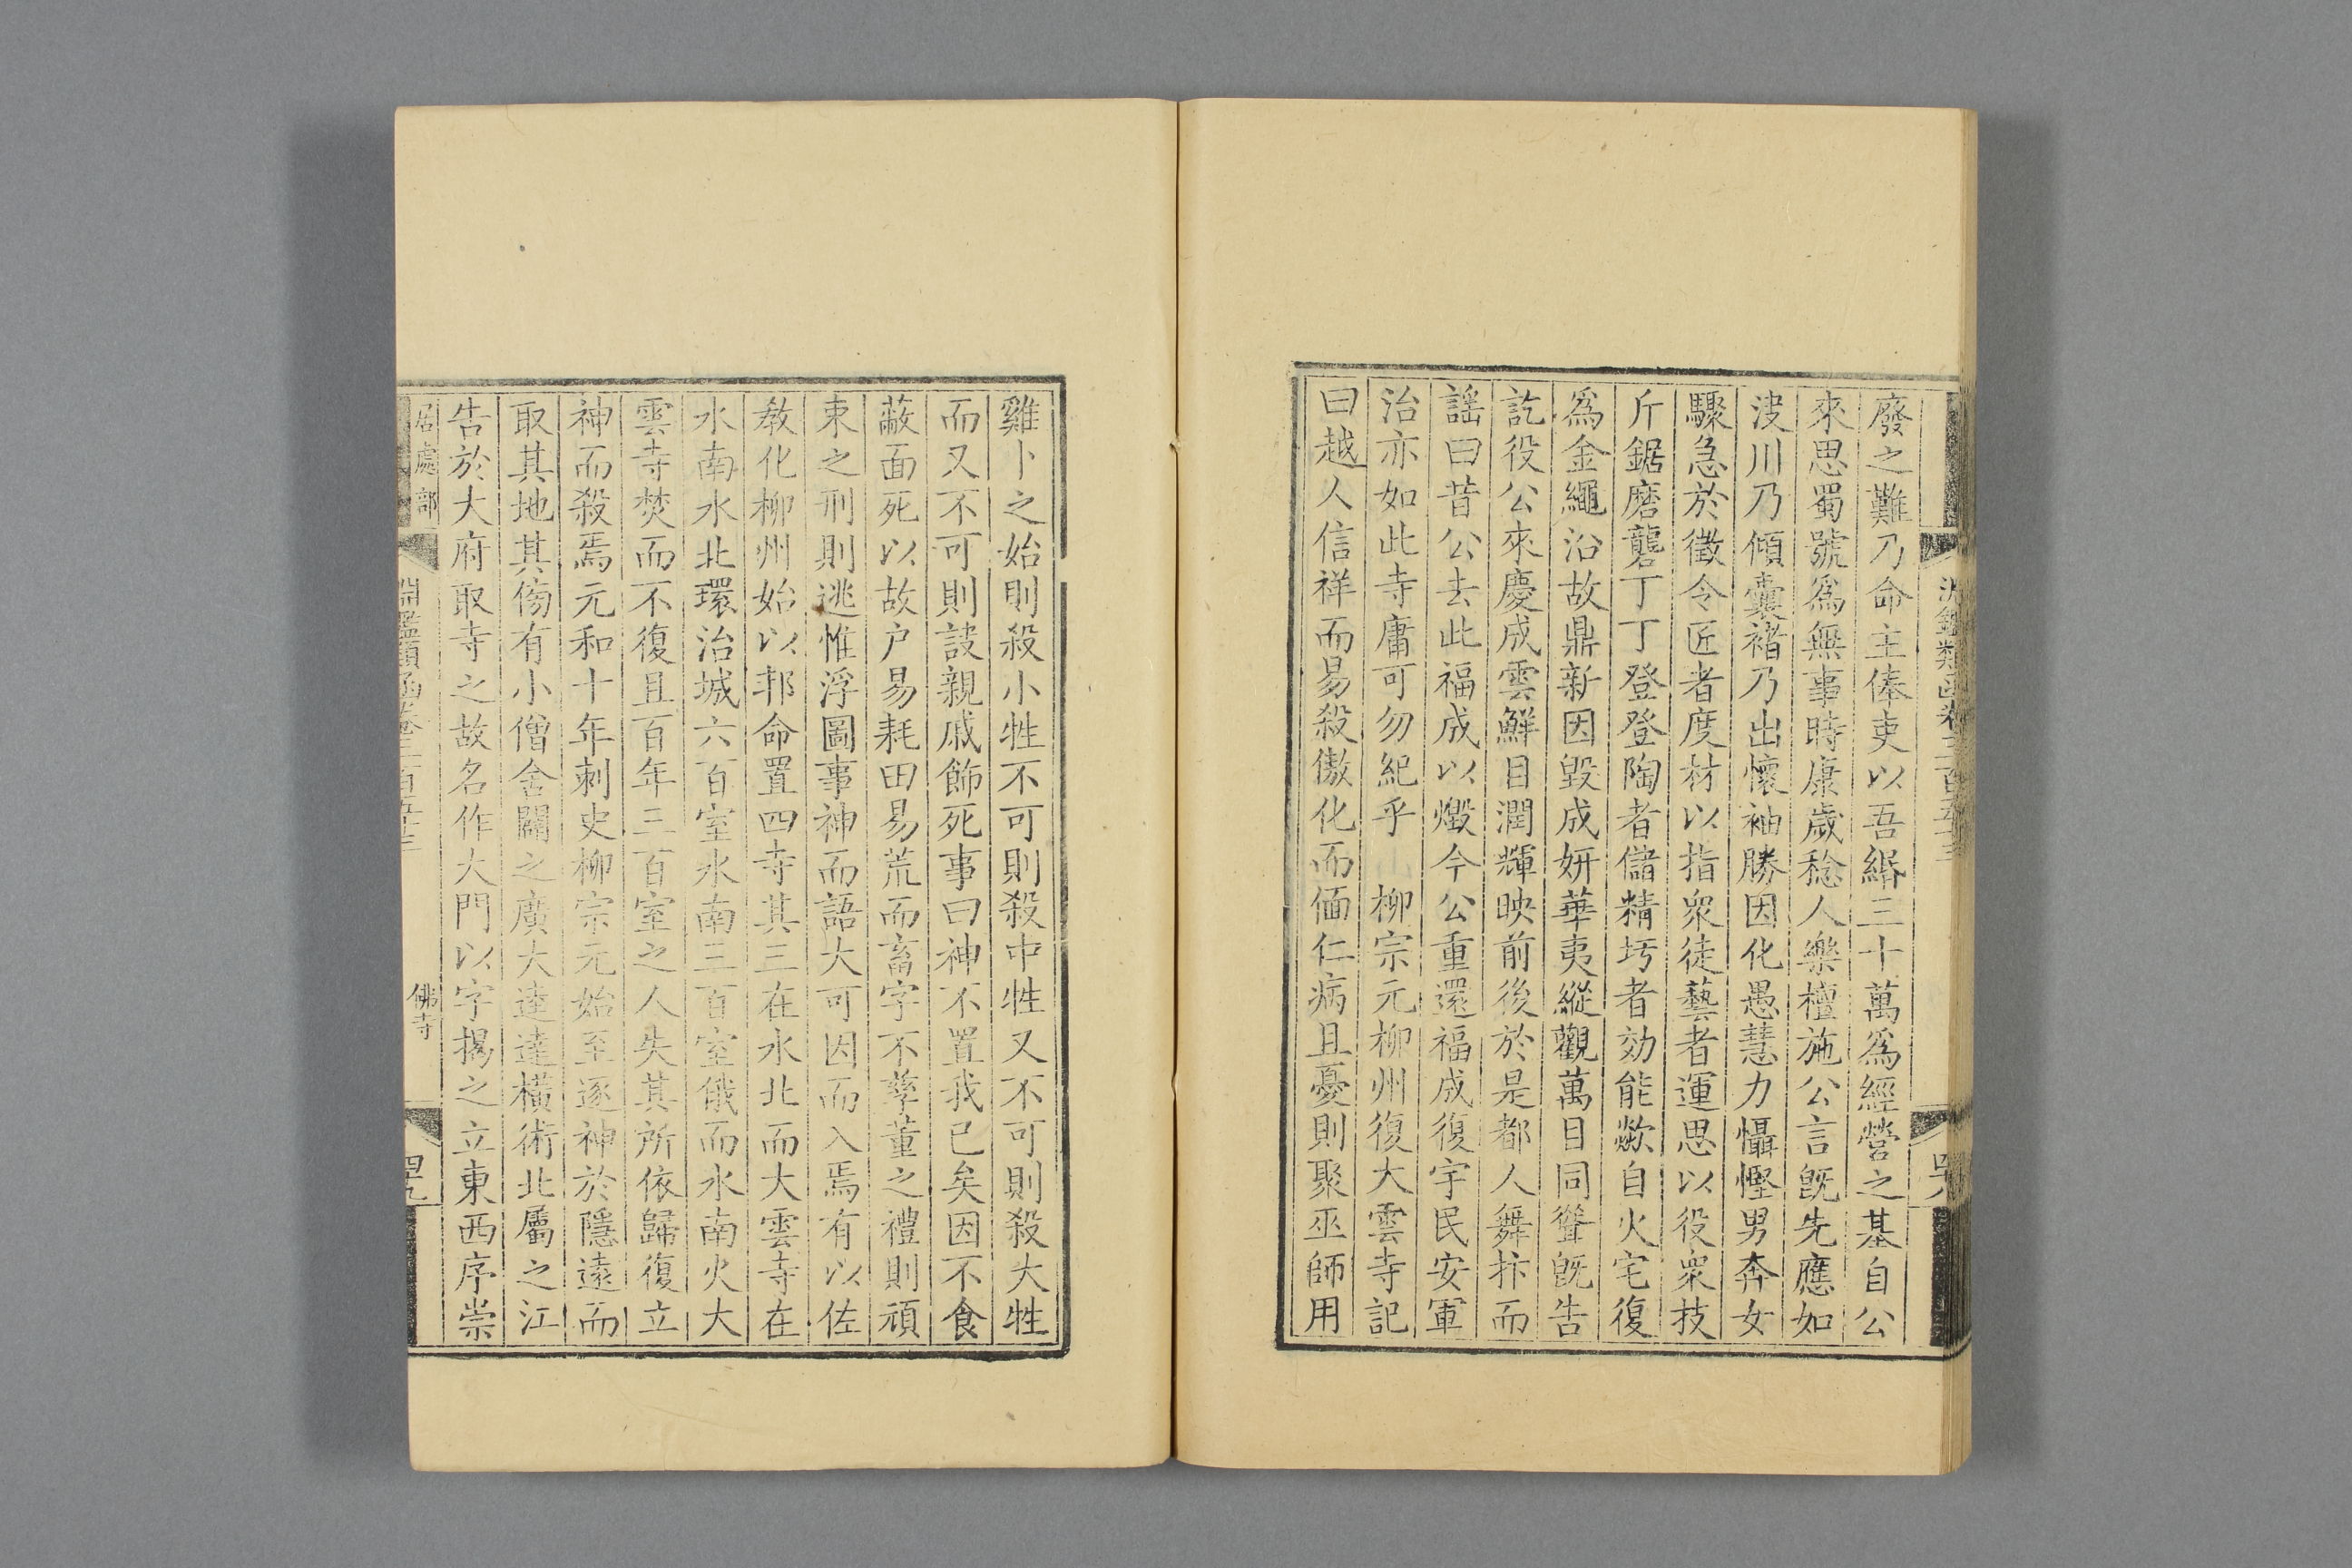 淵鑑類函卷三百五十三
廢之難乃命主俸吏以吾緡三十萬爲經營之基自公
來思蜀號爲無事時康歲稔人樂檀施公言旣先應如
決川乃傾囊褚乃出懷袖勝因化愚慧力懾慳男奔女
驟急於徵令匠者度材以指衆徒藝者運思以役衆技
斤鋸磨礱丁丁登登陶者儲精圬者効能歘自火宅復
爲金繩沿故鼎新因毀成妍華夷縱觀萬目同聳旣告
訖役公來慶成雲鮮日潤輝映前後於是都人舞抃而
謡曰昔公去此福成以燬今公重還福成復宇民安軍
治亦如此寺庸可勿紀乎 柳宗元柳州復大雲寺記
曰越人信祥而易殺傲化而偭仁病且憂則聚巫師用
雞卜之始則殺小牲不可則殺中牲又不可則殺大牲
而又不可則訣親戚飾死事曰神不置我已矣因不食
蔽面死以故户易耗田易荒而畜字不孳董之禮則頑
束之刑則逃惟浮圖事神而語大可因而入焉有以佐
教化柳州始以邦命置四寺其三在水北而大雲寺在
水南水北環治城六百室水南三百室俄而水南火大
雲寺焚而不復且百年三百室之人失其所依歸復立
神而殺焉元和十年刺史柳宗元始至逐神於隱遠而
取其地其傍有小僧舍闢之廣大逵達橫術北屬之江
告於大府取寺之故名作大門以字揭之立東西序崇
居處部 淵鑑類函卷三百五十三 佛寺